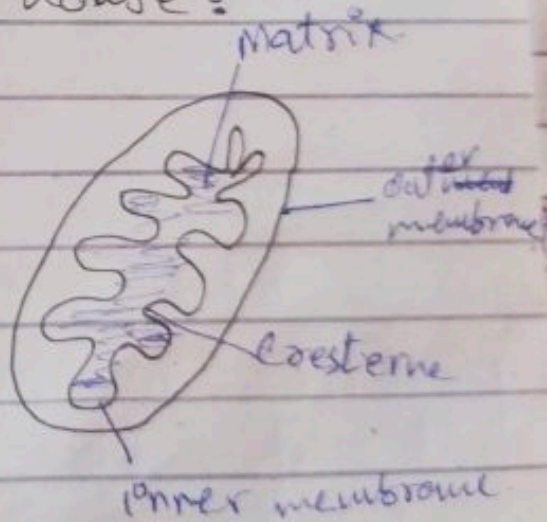 house?
Matrix
outer
membrane
Cresterne
inner membrane